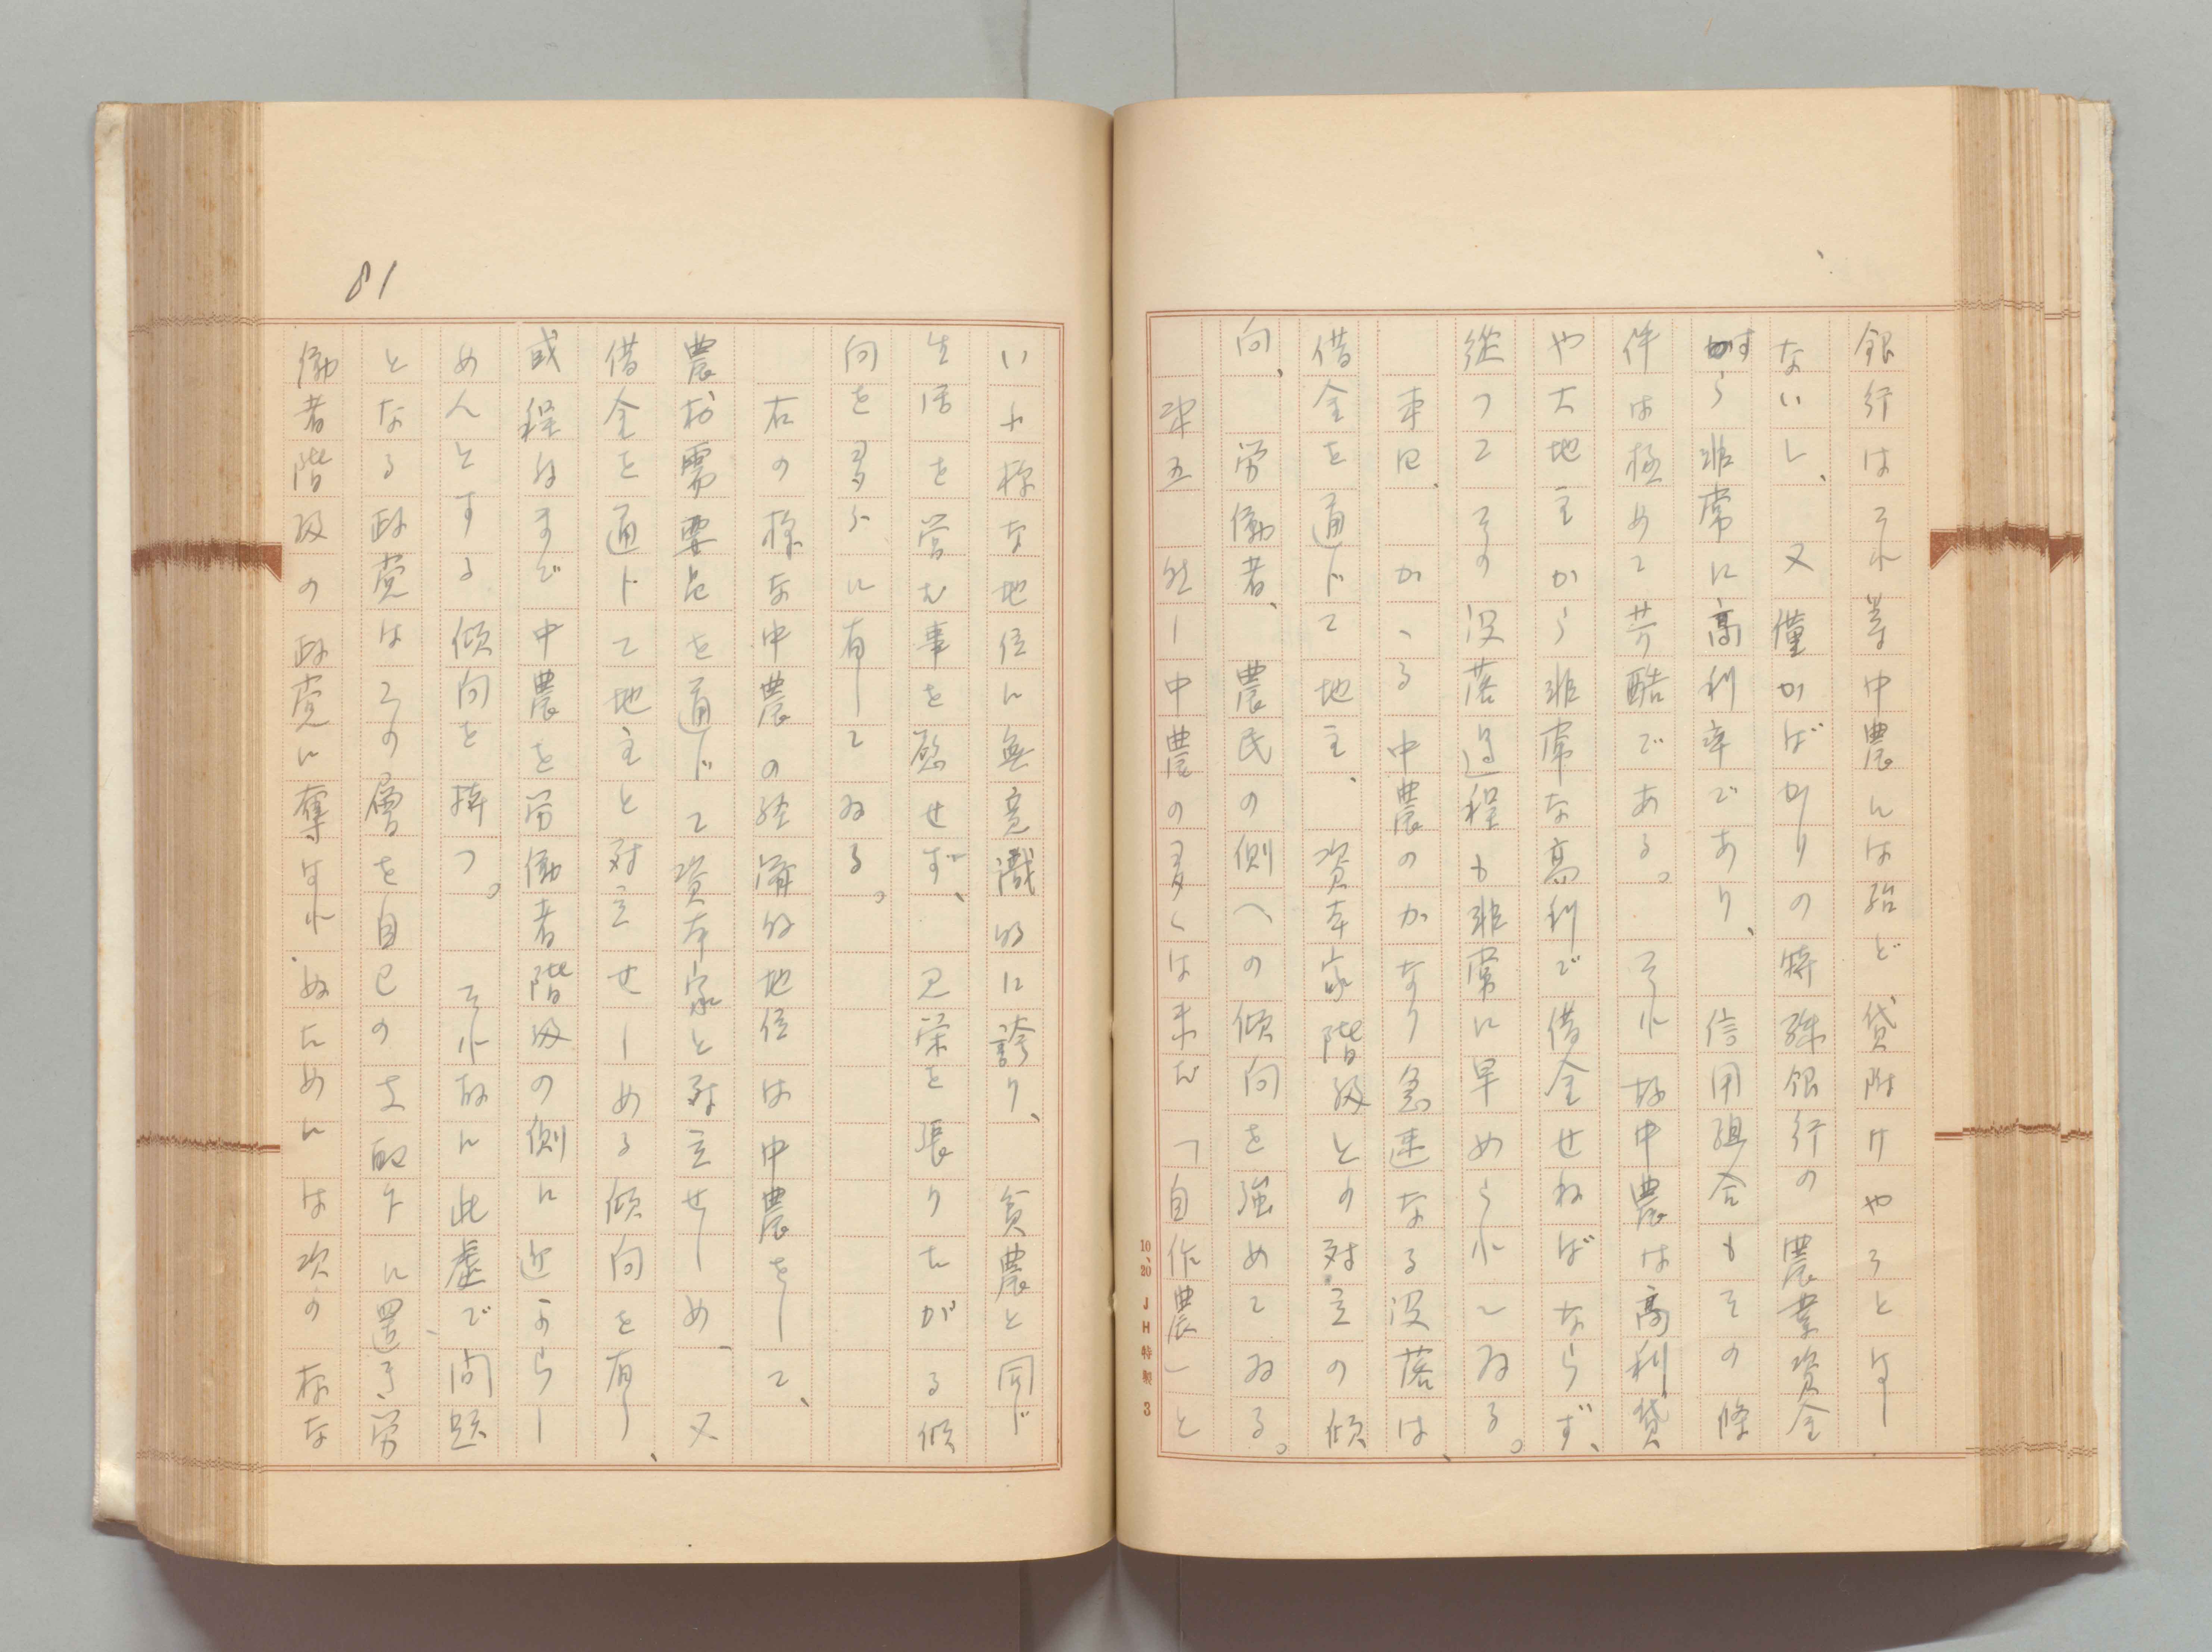 銀行はそれ等中農には殆ど貸附けやうとはし
ないし、又僅かばかりの特殊銀行の農業資金
すら非常に高利率であり、信用組合もその條
件は極めて苛酷である。それ故中農は高利貸
や大地主から非常な高利で借金せねばならず、
從つてその没落過程も非常に早められてゐる。
第四、かゝる中農のかなり急速なる没落は、
借金を通じて地主、資本家階級との対立の傾
向、労働者、農民の側への傾向を強めてゐる。
第五 然し中農の多くは未だ「自作農」と
10、20 JH特製 3
いふ様な地位に無意識的に誇り、貧農と同じ
生活を営む事を慾せず、見栄を張りたがる傾
向を多分に有してゐる。
右の様な中農の経済的地位は中農をして、
農村需要品を通じて資本家と対立せしめ、又
借金を通じて地主と対立せしめる傾向を有し、
或程度まで中農を労働者階級の側に近よらし
めんとする傾向を持つ。それ故に此處で問題
となる政党はこの層を自己の支配下に置き、労
働者階級の政党に奪はれぬためには次の様な
81